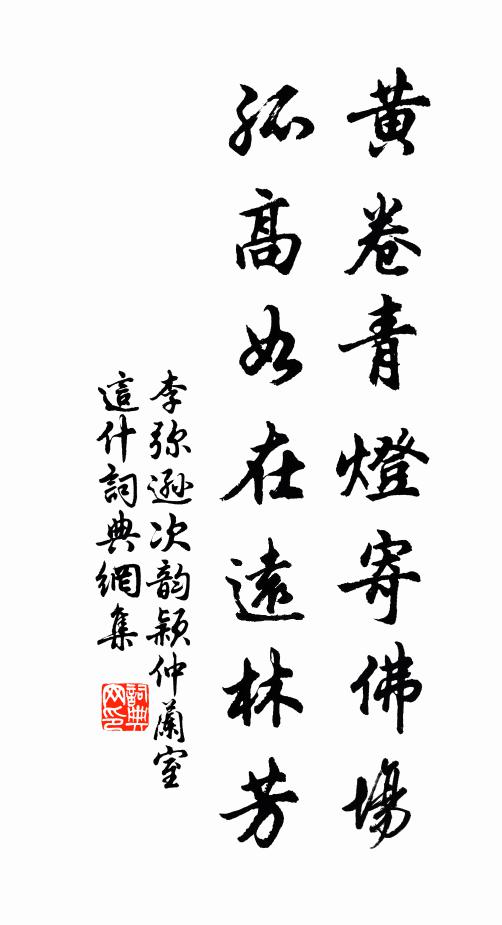 黃卷青燈寄佛場
孤高如在遠林芳
李弥遜次韵穎仲蘭室
這什詞典網集
詞典網印